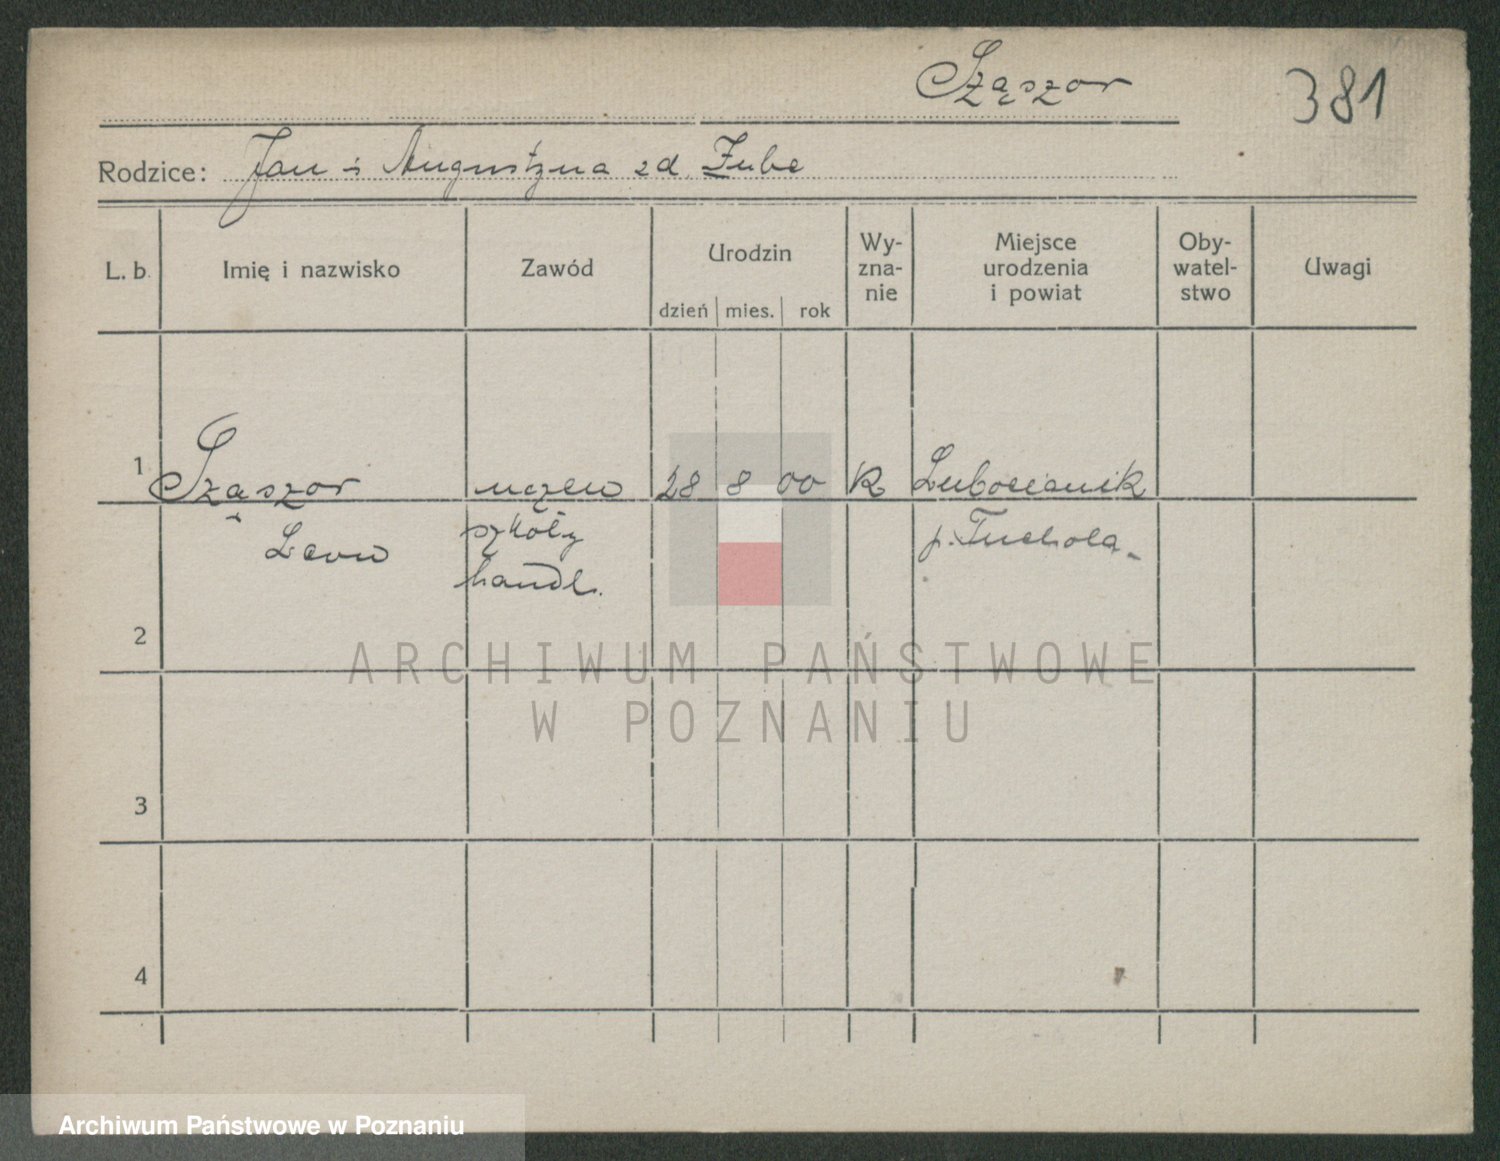 Sząszor
381
Rodzice: Jan i Augustyna zd. Zube
L. b. Imię i nazwisko Zawód Urodzin dzień mies. rok Wy-zna-nie Miejsce urodzenia i powiat Oby-watel-stwo Uwagi
1 Sząszor uczeń 28 8 00 K Lubocianik
Leon szkoły p. Tuchola
handl.
2
3
4
ARCHIWUM PAŃSTWOWE
W POZNANIU
Archiwum Państwowe w Poznaniu